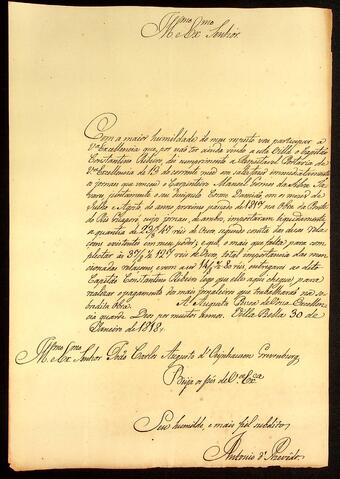 Illmo e Exmo Senhor
Com a maior humildade do meu respeito vou participar a
Va Excellencia que por não ter ainda vindo a esta Villa o Capitão
Constantino Ribeiro, dei cumprimento a Respeitavel Portaria de
Va Excellencia de 13 do corrente mês em satisfazer immediatamente
o jornal que venceu o Carpinteiro Manoel Gomes da Silva
juntamente o seu com os meses de
Julho e Agosto do anno proximo passado de 1817 na Obra da Ponte
do Rio cujos jornaes de ambos, importaram liquidamente
a quantia de reis de Ouro segundo consta das duas rela-
coens existentes em meu poder; e que o mais que falta para com-
pletar as reis de Ouro, total importancia das men-
cionadas relaçoens, e vem a ser reis, entregarei ao dito
Capitão Constantino Ribeiro logo que elle aqui chegue, para
realizar o pagamento dos mais jornaleiros que trabalharão na so-
bredita Obra. A Augusta de Vossa Excellen-
cia guarde Deos por muitos annos. Villa Bella 30 de
Janeiro de 1818.
Illmo e Exmo Senhor João Carlos Augusto d'Oeynhausen Grevenburg
Beija os pés de Va Exca
Seu humilde, e mais fiel subdito
Antonio d'Azevedo